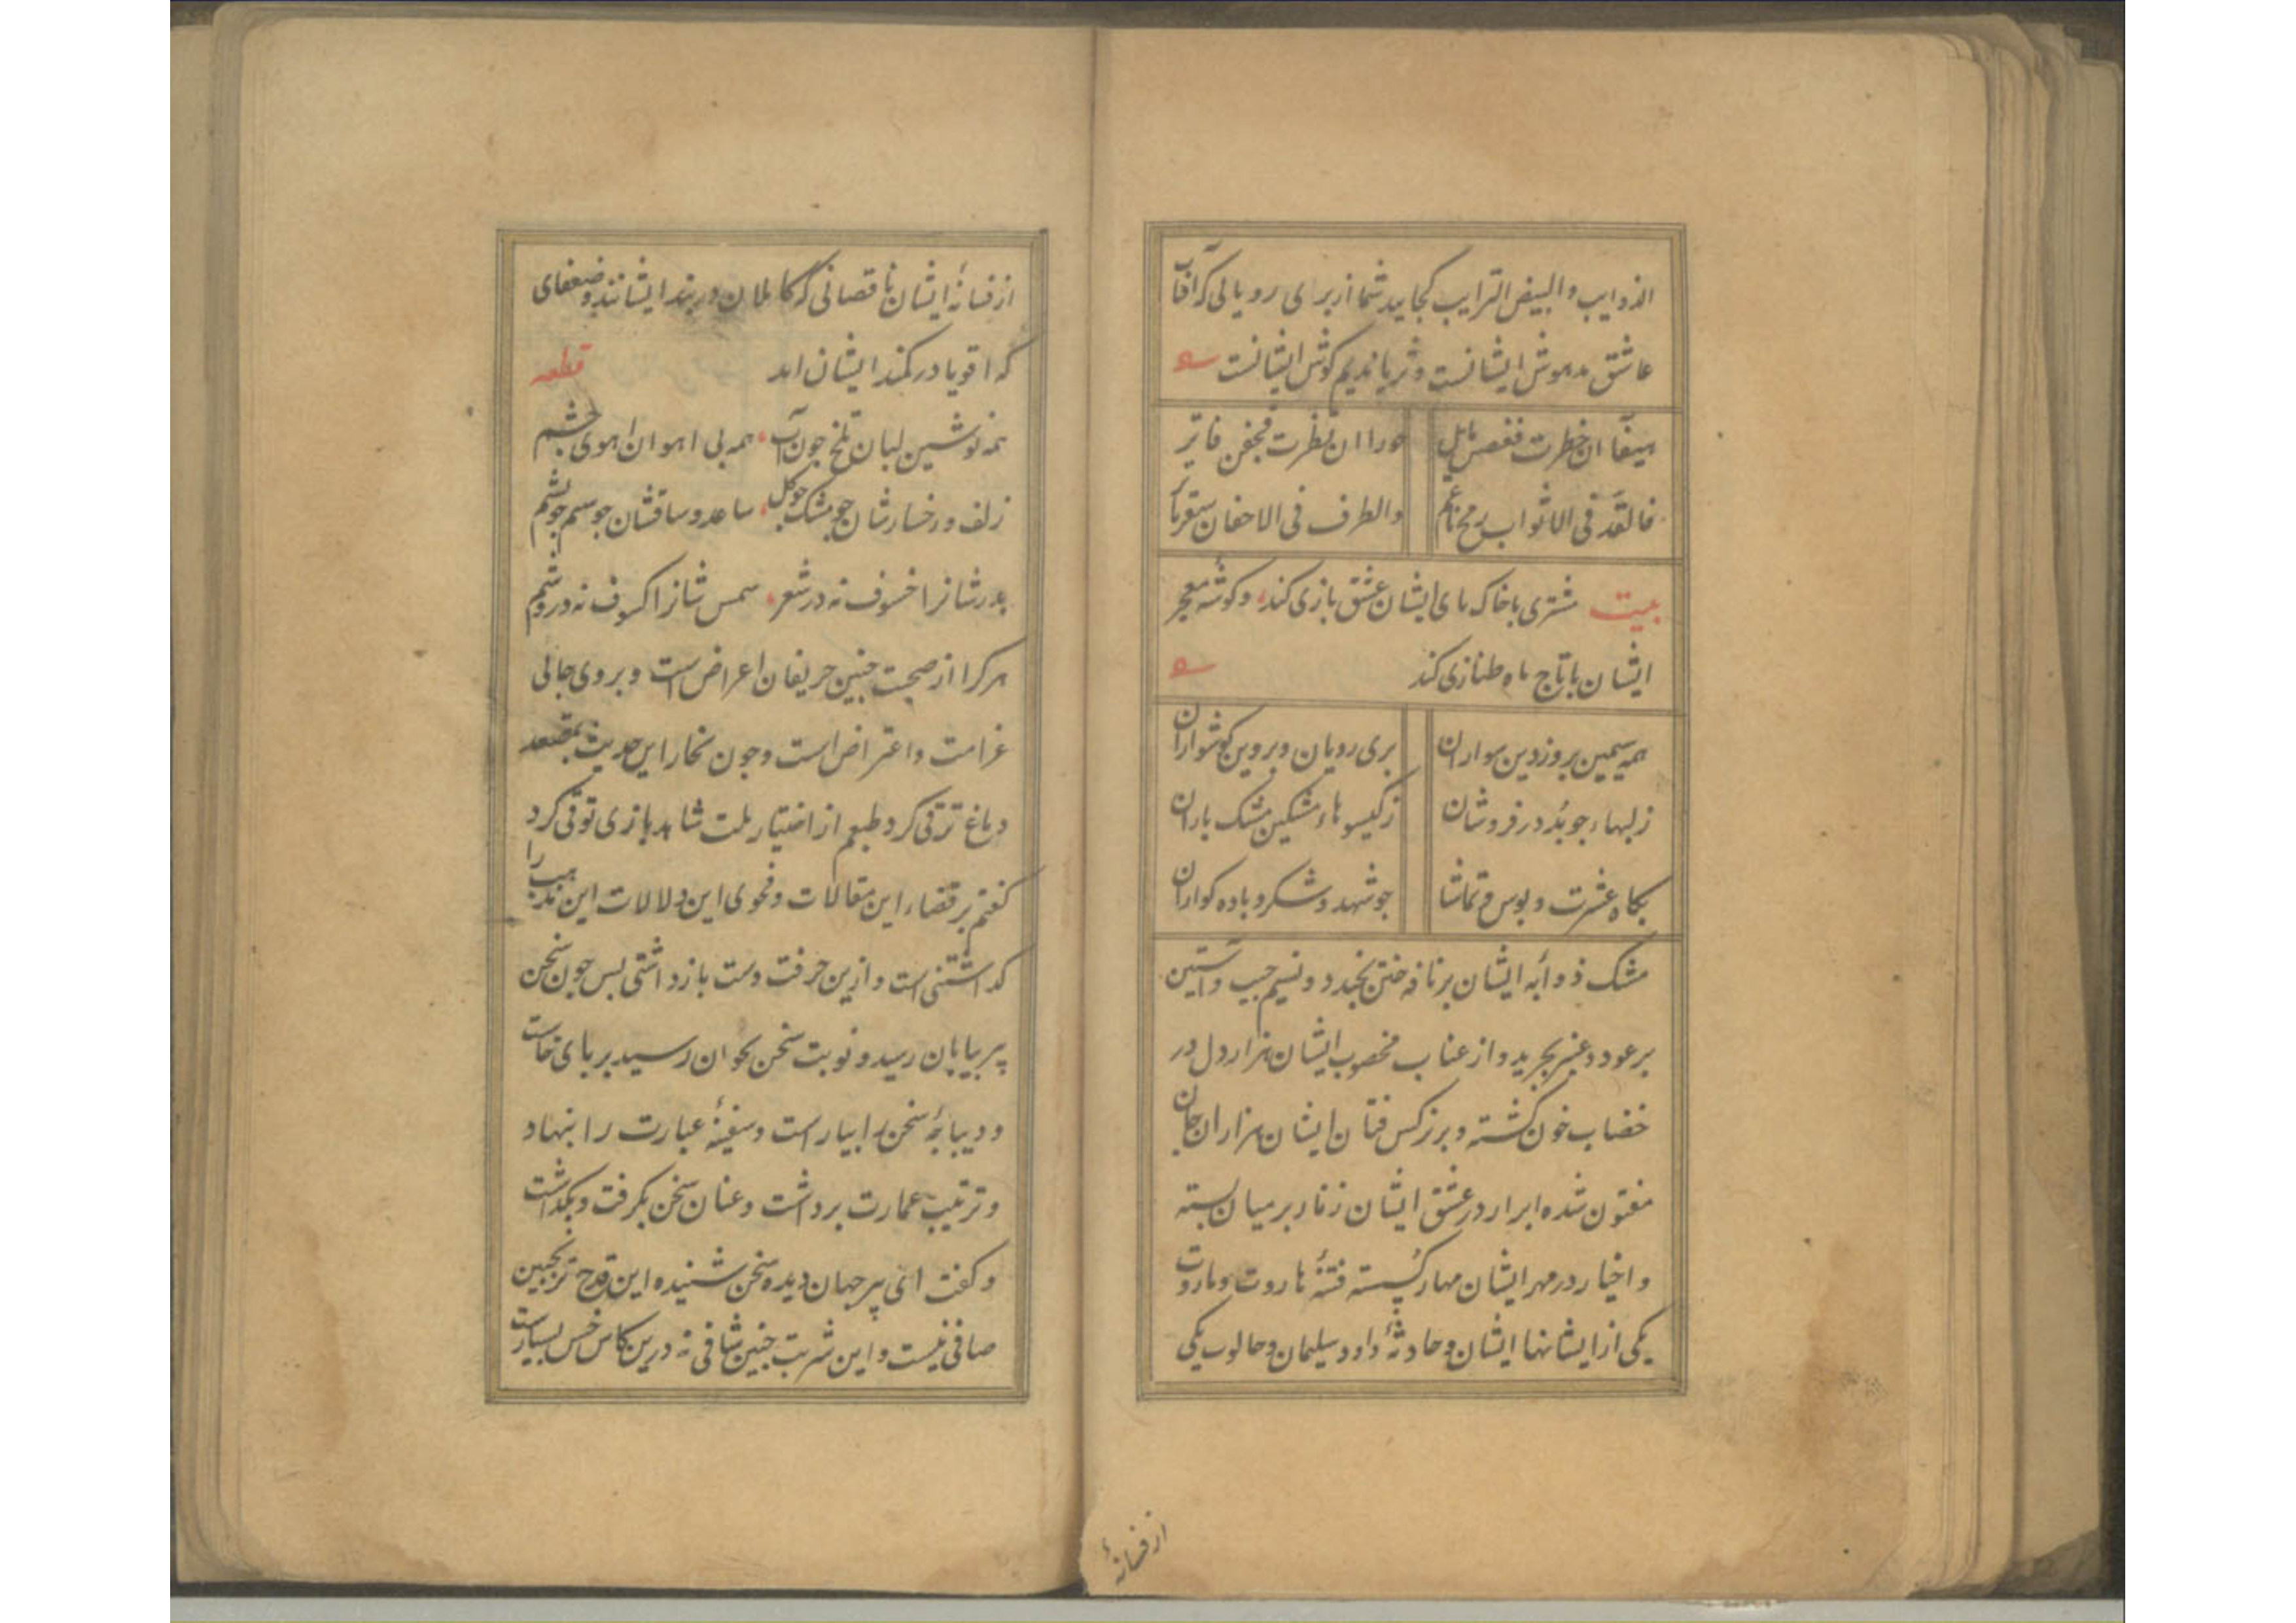 الذوایب والبیض الترایب کجایید شما از برای رویانی که آفتاب
عاشق مدهوش ایشانست و ثریا ندیم کوش ایشانست
هیفآ ان خطرت فغصن مایل حورا ان نظرت فجفن فاتر
فالقد فی الاثواب رمح ناعم والطرف فی الاجفان
بیت مشتری با خاک پای ایشان عشق بازی کند، و کوشه معجر
ایشان با تاج ماه طنازی کند
همه سیمین بر و زرین سواران بری رویان و بروین کوشواران
زلبهاء جو بُد در فروشان ز کیسوهاء مشکین مشک باران
بکاه عشرت و بوس و تماشا جو شهد و شکر و باده کواران
مشک ذوابه ایشان بر نافه ختن بخندد و نسیم جیب و آستین
بر عود و عنبر بچربد و از عناب مخضوب ایشان هزار دل در
خضاب خون کشته و بر نرکس فتان ایشان هزاران جان
مفتون شده ابرار در عشق ایشان زنار بر میان بسته
و اخیار در مهر ایشان مهار کسسته فتنهٔ هاروت و ماروت
یکی از ایشانها ایشان و حادثهٔ داود و سلیمان و جالوب یکی
از فسانهٔ
از فسانهٔ ایشان ناقصانی که کاملان در بند ایشانند و ضعفای
که اقویا در کمند ایشان اند قطعه
همه نوشین لبان تلخ جون آب، همه بی اهوان اهوی جشم
زلف و رخسارشان جو مشک جو کل، ساعد و ساقشان جو سیم جو یشم
بدرشانرا خسوف نه در شعر، شمس شانرا کسوف نه در وشم
هرکرا از صحبت جنین حریفان اعراض است و بر وی جای
غرامت و اعتراض است و جون بخار این حدیث بمصعد
دماغ ترقی کرد و طبعم از اختیار ملت شاهد بازی توقی کرد
کفتم بر قضاء این مقالات و فحوی این دلالات این مذهب را
کذاشتنی است و ازین حرفت دست بازداشتی بس جون سخن
پیر بپایان رسید و نوبت سخن بجوان رسید بر پای خاست
و دیباجهٔ سخن را بیاراست و سفینهٔ عبارت را بنهاد
و ترتیب عمارت برداشت و عنان سخن بکرفت و بکذاشت
و کفت ای پیر جهان دیده سخن شنیده این قدح ترنجبین
صافی نیست و این شربت جنین شافی نه درین کاس خس بسیارست